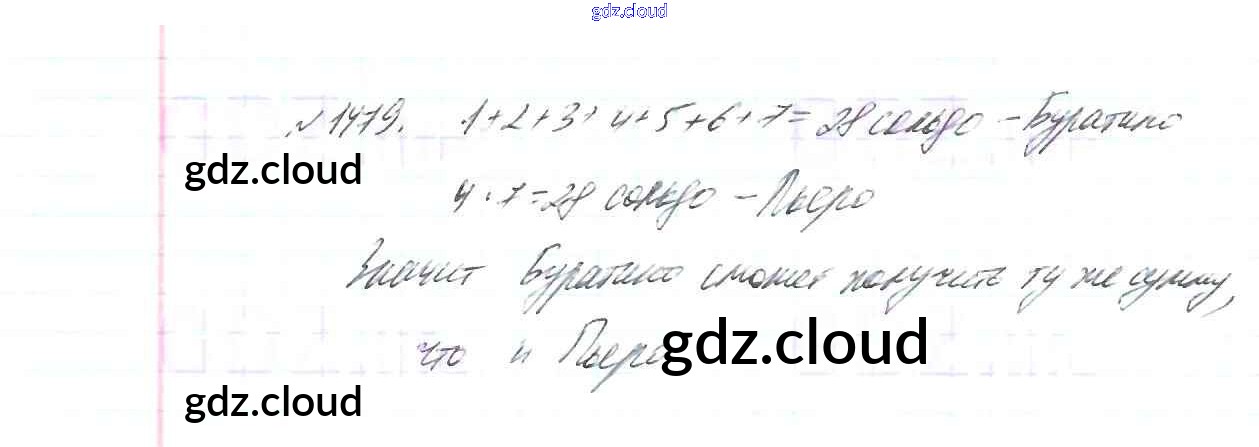 gdz.cloud
№1479. 1+2+3+4+5+6+7=28 сольдо - Буратино
gdz.cloud
4·7=28 сольдо - Пьеро
Значит Буратино сможет получить ту же сумму,
что и Пьеро
gdz.cloud
gdz.cloud